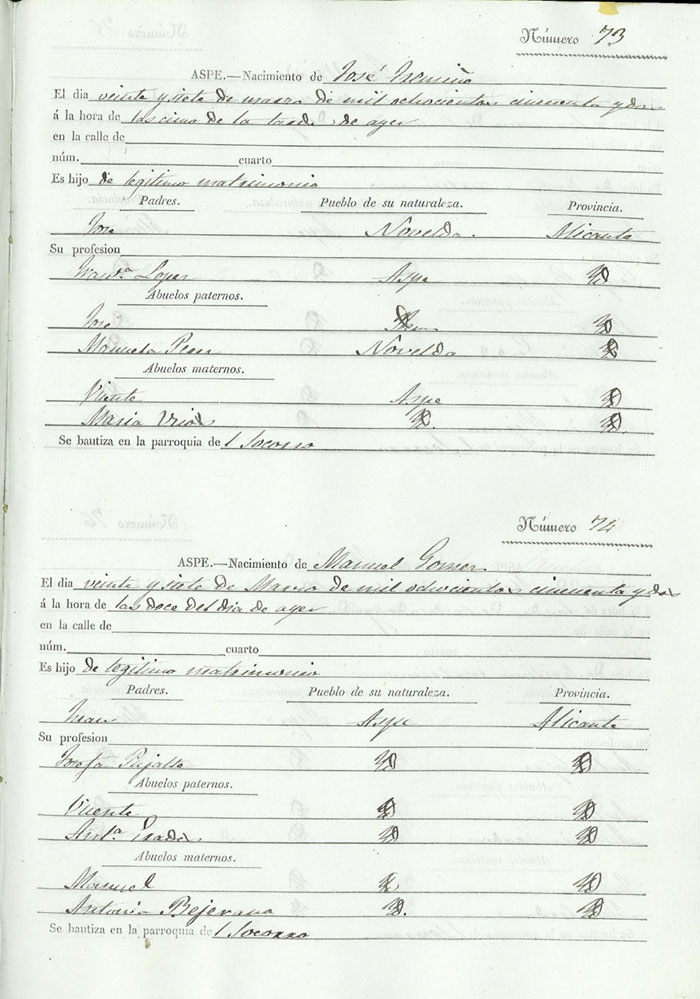 Número 73
ASPE.—Nacimiento de José
El dia veinte y siete de marzo de mil ochocientos cincuenta y dos
á la hora de las cinco de la tarde de ayer
en la calle de
núm. cuarto
Es hijo de legitimo matrimonio
Padres. Pueblo de su naturaleza. Provincia.
Jose Novelda. Alicante
Su profesion
Fran.ca Lopez Aspe YD
Abuelos paternos.
José YD
Manuela Perez Novelda YD
Abuelos maternos.
Vicente Aspe YD
Maria YD. YD.
Se bautiza en la parroquia del Socorro
Número 74
ASPE.—Nacimiento de Manuel Gomez
El dia veinte y siete de Marzo de mil ochocientos cincuenta y dos
á la hora de las doce del dia de ayer
en la calle de
núm. cuarto
Es hijo de legitimo matrimonio
Padres. Pueblo de su naturaleza. Provincia.
Aspe Alicante
Su profesion
Josefa Pujalte YD YD
Abuelos paternos.
Vicente YD YD
Ant.a YD YD
Abuelos maternos.
Manuel YD
Antonia Bejerana YD. YD
Se bautiza en la parroquia del Socorro